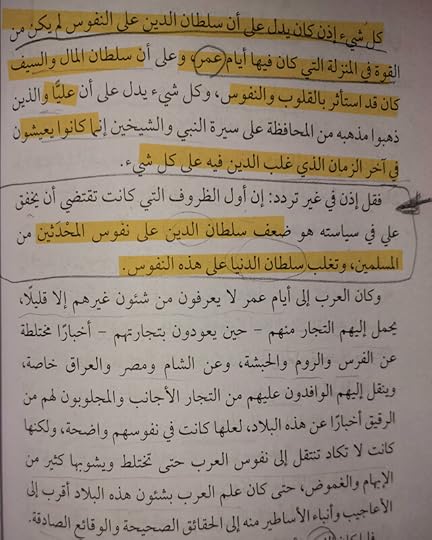 كل شيء إذن كان يدل على أن سلطان الدين على النفوس لم يكن من
القوة في المنزلة التي كان فيها أيام عمر، وعلى أن سلطان المال والسيف
كان قد استأثر بالقلوب والنفوس، وكل شيء يدل على أن عليًّا والذين
ذهبوا مذهبه من المحافظة على سيرة النبي والشيخين إنما كانوا يعيشون
في آخر الزمان الذي غلب الدين فيه على كل شيء.
فقل إذن في غير تردد: إن أول الظروف التي كانت تقتضي أن يخفق
علي في سياسته هو ضعف سلطان الدين على نفوس المحْدَثين من
المسلمين، وتغلب سلطان الدنيا على هذه النفوس.
وكان العرب إلى أيام عمر لا يعرفون من شئون غيرهم إلا قليلًا،
يحمل إليهم التجار منهم – حين يعودون بتجارتهم – أخبارًا مختلطة
عن الفرس والروم والحبشة، وعن الشام ومصر والعراق خاصة،
وينقل إليهم الوافدون عليهم من التجار الأجانب والمجلوبون لهم من
الرقيق أخبارًا عن هذه البلاد، لعلها كانت في نفوسهم واضحة، ولكنها
كانت لا تكاد تنتقل إلى نفوس العرب حتى تختلط ويشوبها كثير من
الإبهام والغموض، حتى كان علم العرب بشئون هذه البلاد أقرب إلى
الأعاجيب وأنباء الأساطير منه إلى الحقائق الصحيحة والوقائع الصادقة.